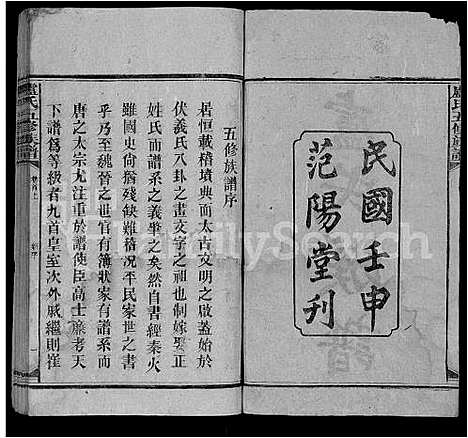 民國壬申
范陽堂刊
盧氏五修族譜
五修族譜序
居恒載稽墳典而太古文明之啟蓋始於
伏羲氏八卦之畫文字之祖也制嫁娶正
姓氏而譜系之義肇矣然自書經秦火
雖國史尚猶殘缺難稽况平民家世之書
乎乃至魏晉之世官有簿狀家有譜系而
唐之太宗尤注重於譜使臣高士廉考天
下譜爲等級者九首皇室次外戚繼則崔
盧氏五修族譜
FamilySearch